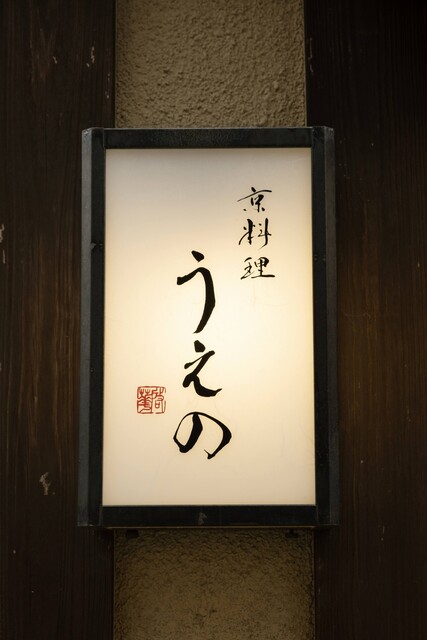 京料理
うえの